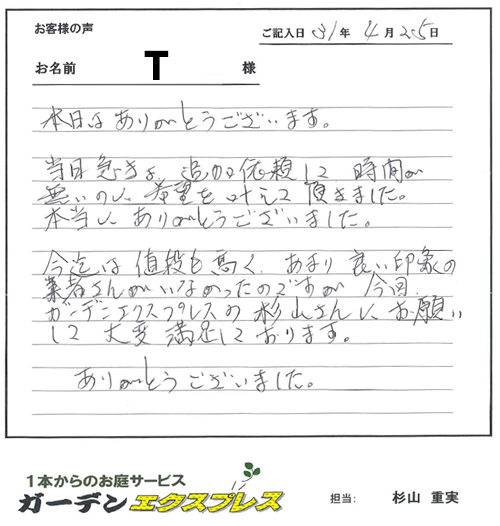 お客様の声
ご記入日 31年 4月 25日
お名前 T 様
本日は ありがとうございます。
当日急きょ、追加依頼して 時間が
無いのに、希望を叶えて頂きました。
本当に ありがとうございました。
今迄は 値段も高く、あまり 良い印象の
業者さんがいなかったのですが 今回
ガーデンエクスプレスの杉山さんに、お願い
して 大変 満足して おります。
ありがとうございました。
1本からのお庭サービス
ガーデン エクスプレス
担当: 杉山 重実